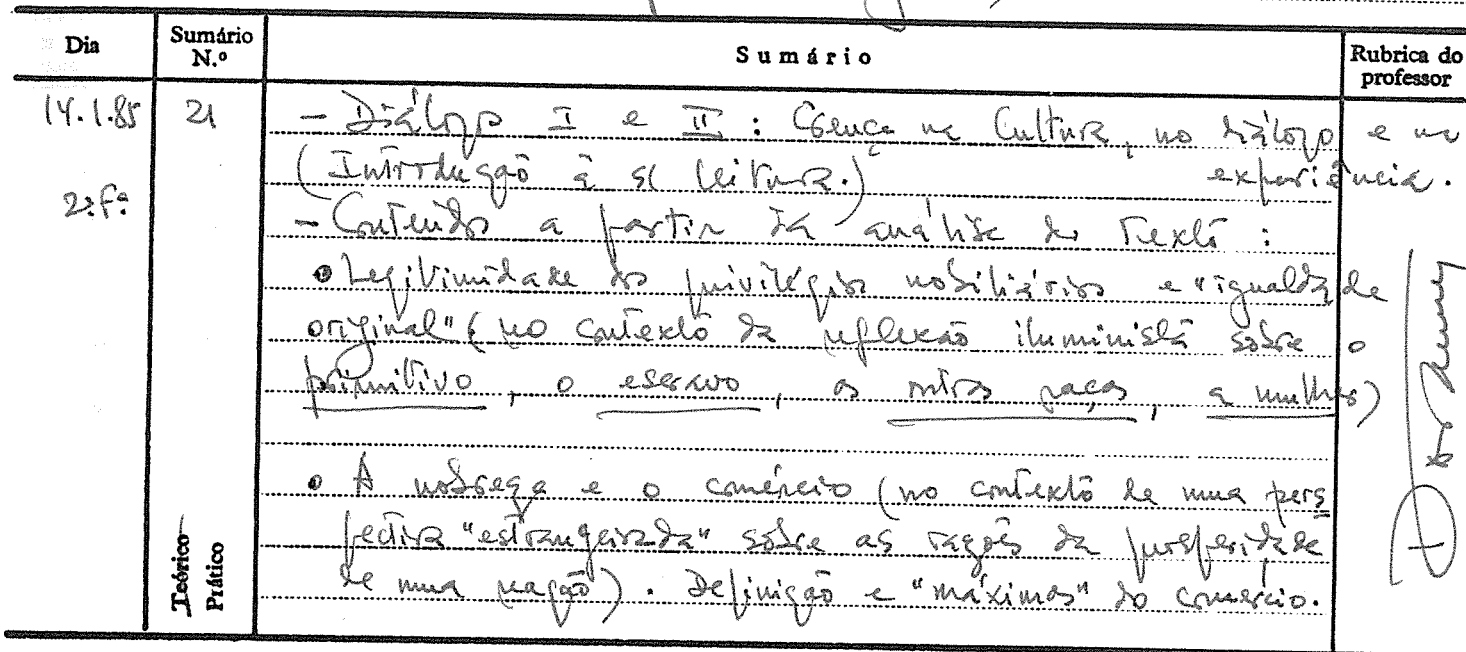 Dia
Sumário N.º
Sumário
Rubrica do professor
14.1.85
21
2ª fª
- Diálogo I e II: Crença na Cultura, no diálogo e na
(Introdução à sua leitura.) experiência.
- Conteúdo a partir da análise do Texto:
• Legitimidade dos privilégios nobiliários e "igualdade
original" (no contexto da reflexão iluminista sobre o
primitivo, o escravo, as outras raças, a mulher)
• A nobreza e o comércio (no contexto de uma pers
pectiva "estrangeirada" sobre as razões da prosperidade
de uma nação). Definição e "máximas" do comércio.
Teórico
Prático